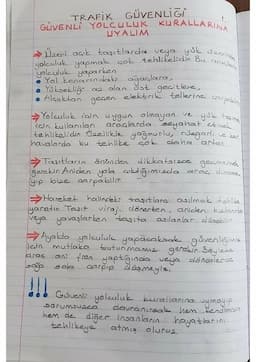 TRAFİK GÜVENLİĞİ
GÜVENLİ YOLCULUK KURALLARINA
UYALIM
Üzeri açık taşıtlarda veya yük
yolculuk yapmak çok tehlikelidir. Bu
yolculuk yaparken
Yol kenarındaki ağaçlara,
Yüksekliği az olan üst geçitlere,
Alçaktan geçen elektrik tellerine
Yolculuk için uygun olmayan ve yük
için kullanılan araçlarda seyahat etmek
tehlikelidir. Özellikle yağmurlu, rüzgarlı
havalarda bu tehlike çok daha artar.
Taşıtların önünden dikkatsizce geçmemek
gerekir. Aniden yola çıktığımızda
yıp bize çarpabilir.
Hareket halindeki taşıtlara asılmak tehlike
yaratır. Taşıt virajı dönerken, aniden
veya yavaşlarken taşıta asılanlar
Ayakta yolculuk yapacaksak güvenliğimiz
için mutlaka tutunmamız gerekir. Böylece
araç ani fren yaptığında veya dönüşlerde
sağa sola çarpıp düşmeyiz.
!!! Güvenli yolculuk kurallarına uymayıp
sorumsuzca davranırsak hem kendimizin
hem de diğer insanların hayatlarını
tehlikeye atmış oluruz.